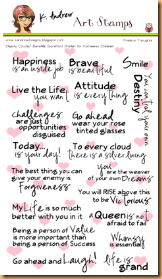 K. Andrew
Art Stamps
Happiness
is an inside job
Brave
is beautiful
Smile
Live the Life
you want
Attitude
is everything
Destiny
challenges
are just
opportunities
disguised
Go ahead
wear your rose
tinted glasses
Today...
is your day!
To every cloud
there is a silver lining
The best thing you can
give your enemy is
Forgiveness
you
are the weaver
of your own
You will RISE above this
to be Victorious
My Life is so much
better with you in it
A Queen is not
afraid to fail
Being a person of Value
is more important than
being a person of Success
Whimsy
is essential
Go ahead and Laugh!
life is
grand